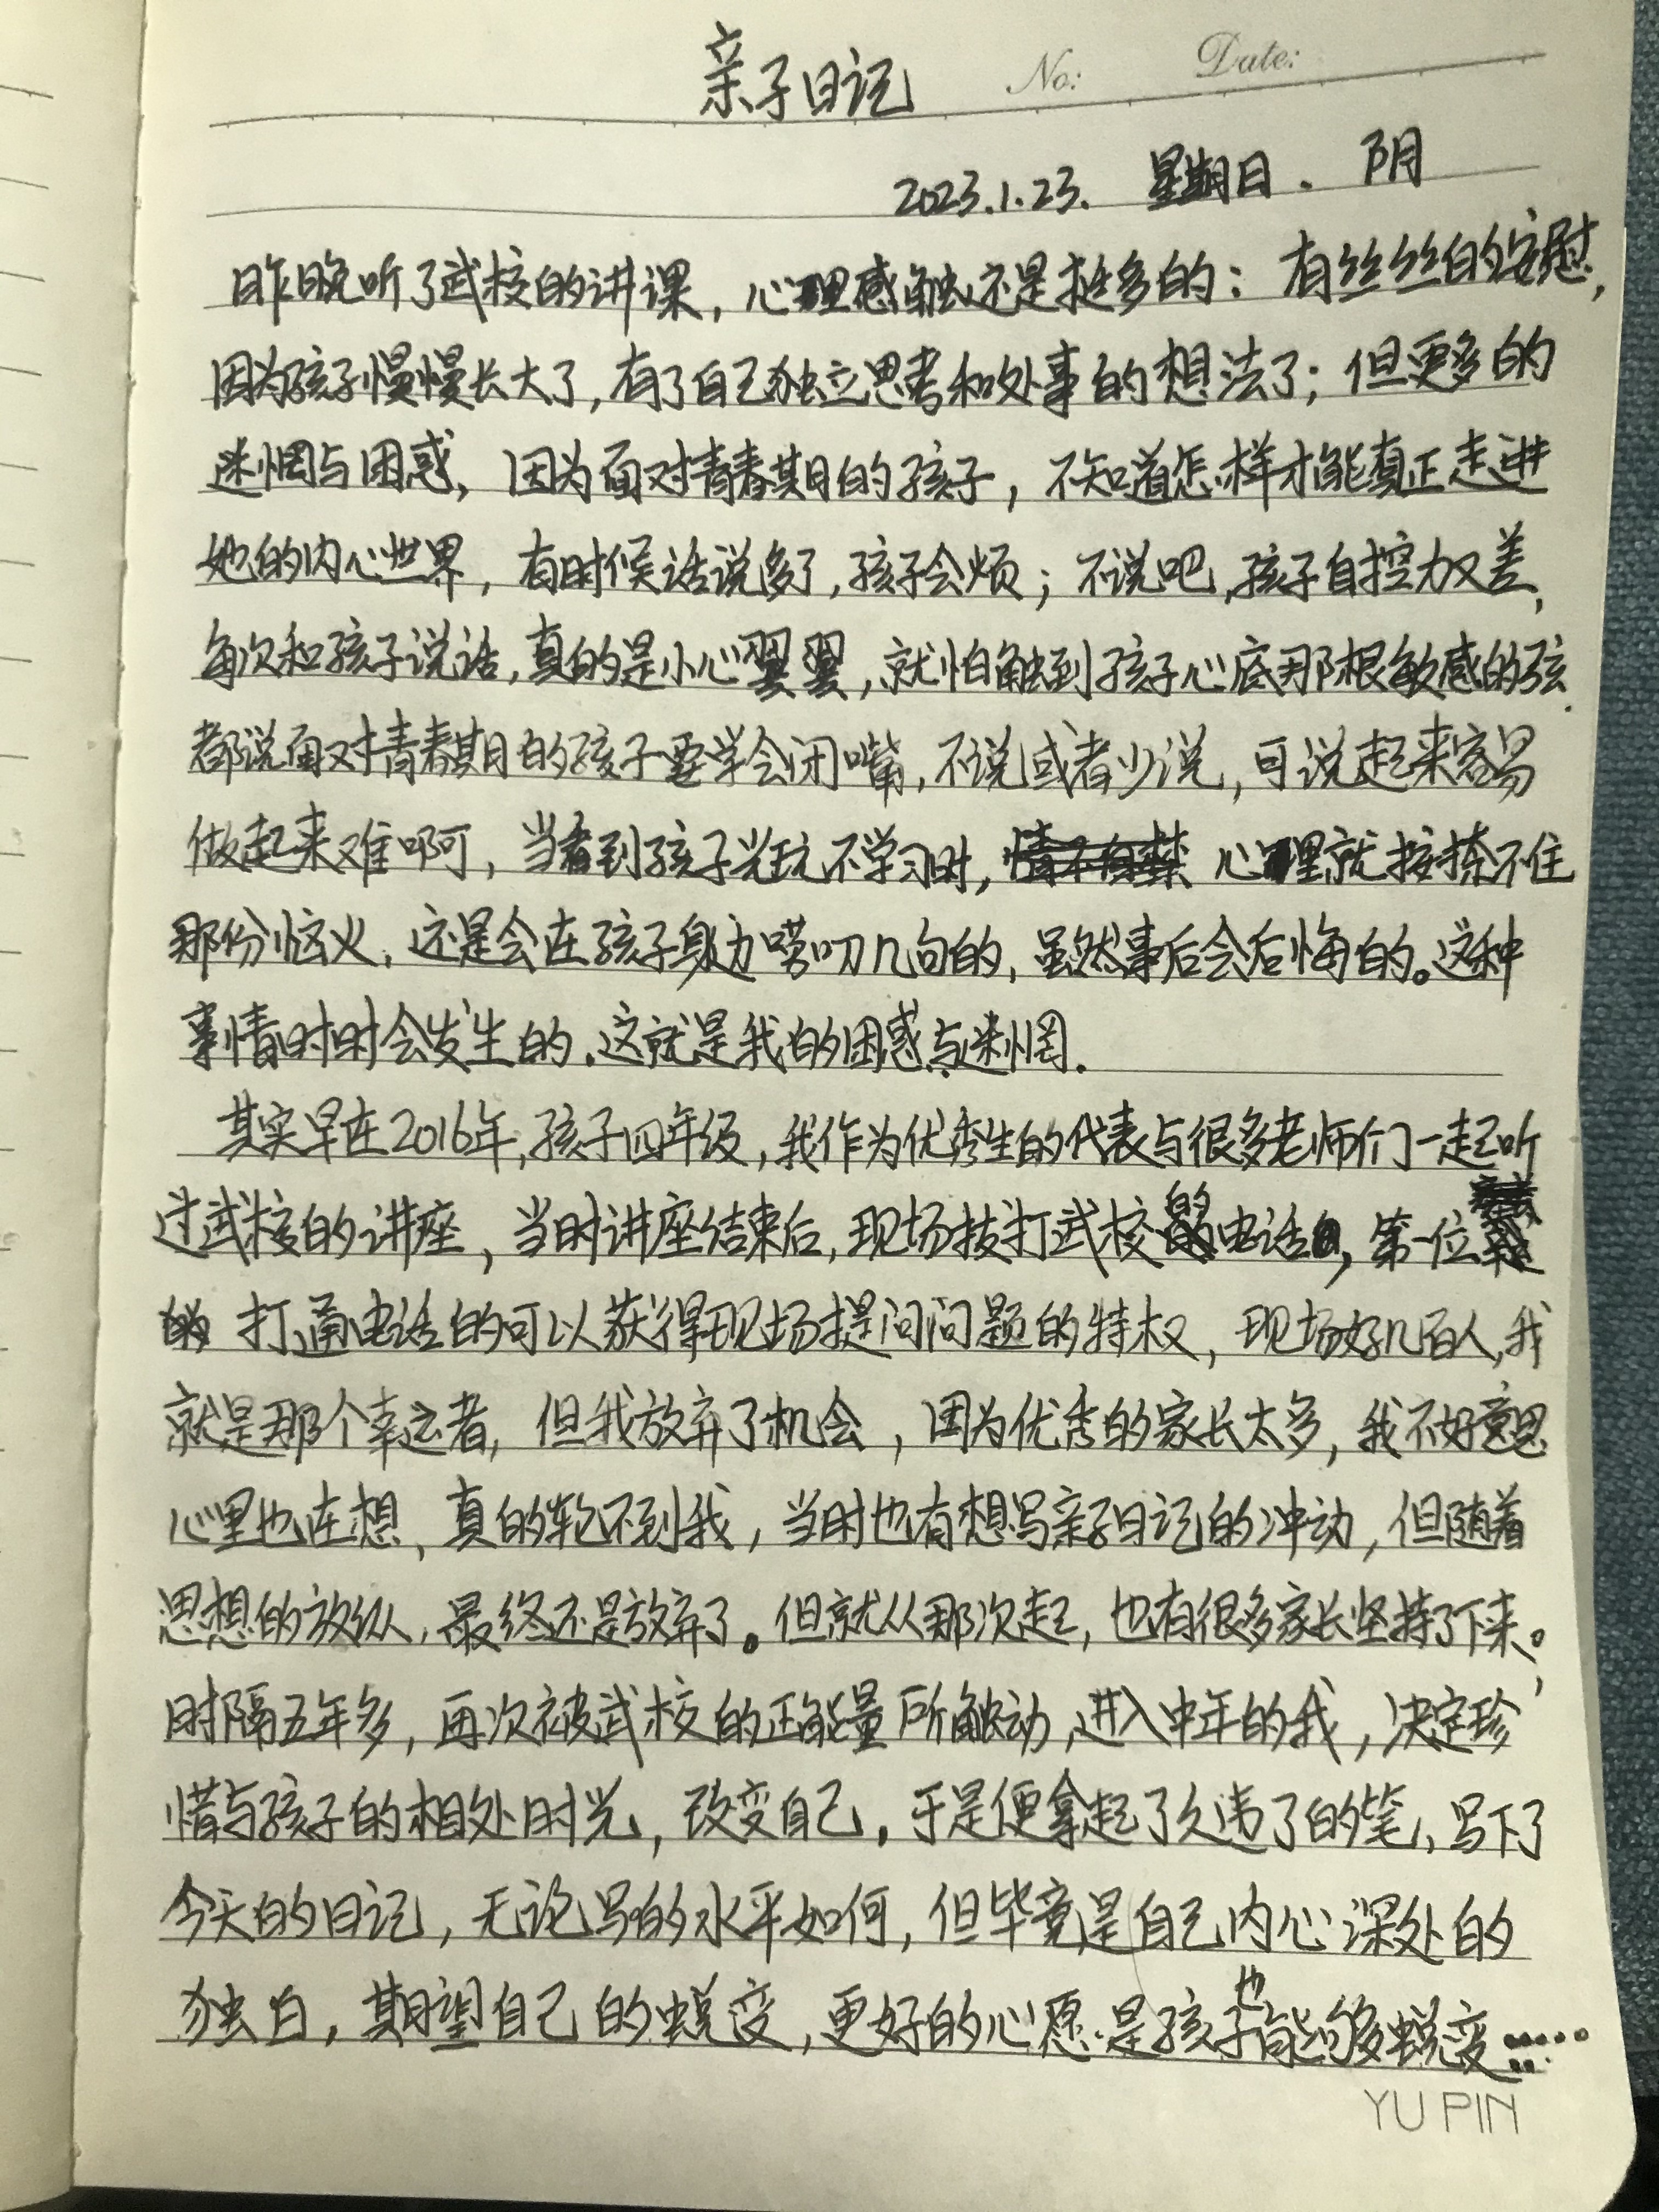 亲子日记 No: Date:
2023.1.23. 星期日. 阴
昨晚听了武校的讲课，心理感触还是挺多的：有丝丝的安慰，
因为孩子慢慢长大了，有了自己独立思考和处事的想法了；但更多的
迷惘与困惑，因为面对青春期的孩子，不知道怎样才能真正走进
她的内心世界，有时候话说多了，孩子会烦；不说吧，孩子自控力又差，
每次和孩子说话，真的是小心翼翼，就怕触到孩子心底那根敏感的弦.
都说面对青春期的孩子要学会闭嘴，不说或者少说，可说起来容易
做起来难啊，当看到孩子光玩不学习时，心理就按捺不住
那份恼火，还是会在孩子身边唠叨几句的，虽然事后会后悔的。这种
事情时时会发生的.这就是我的困惑与迷惘.
其实早在2016年，孩子四年级，我作为优秀生的代表与很多老师们一起听
过武校的讲座，当时讲座结束后，现场拨打武校的电话，第一位
打通电话的可以获得现场提问问题的特权，现场好几百人，我
就是那个幸运者，但我放弃了机会，因为优秀的家长太多，我不好意思
心里也在想，真的轮不到我，当时也有想写亲子日记的冲动，但随着
思想的放纵，最终还是放弃了。但就从那次起，也有很多家长坚持了下来。
时隔五年多，再次被武校的正能量所触动，进入中年的我，决定珍
惜与孩子的相处时光，改变自己，于是便拿起了久违了的笔，写下了
今天的日记，无论写的水平如何，但毕竟是自己内心深处的
独白，期望自己的蜕变，更好的心愿是孩子也能够蜕变……
YU PIN